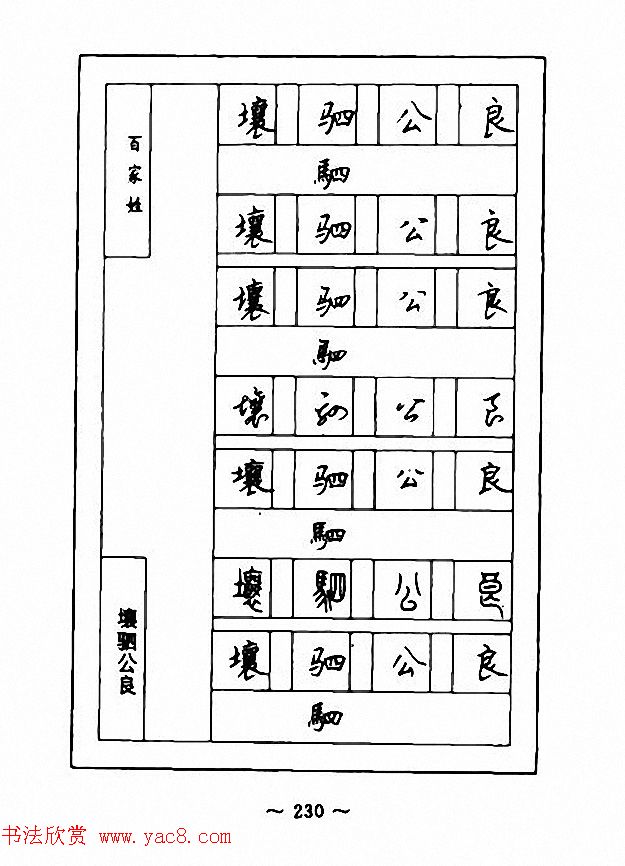 百家姓
壤驷公良
馬四
壤驷公良
壤驷公良
馬四
壤驷公良
壤驷公良
馬四
壤驷公良
壤驷公良
馬四
壤驷公良
~ 230 ~
书法欣赏 www.yac8.com